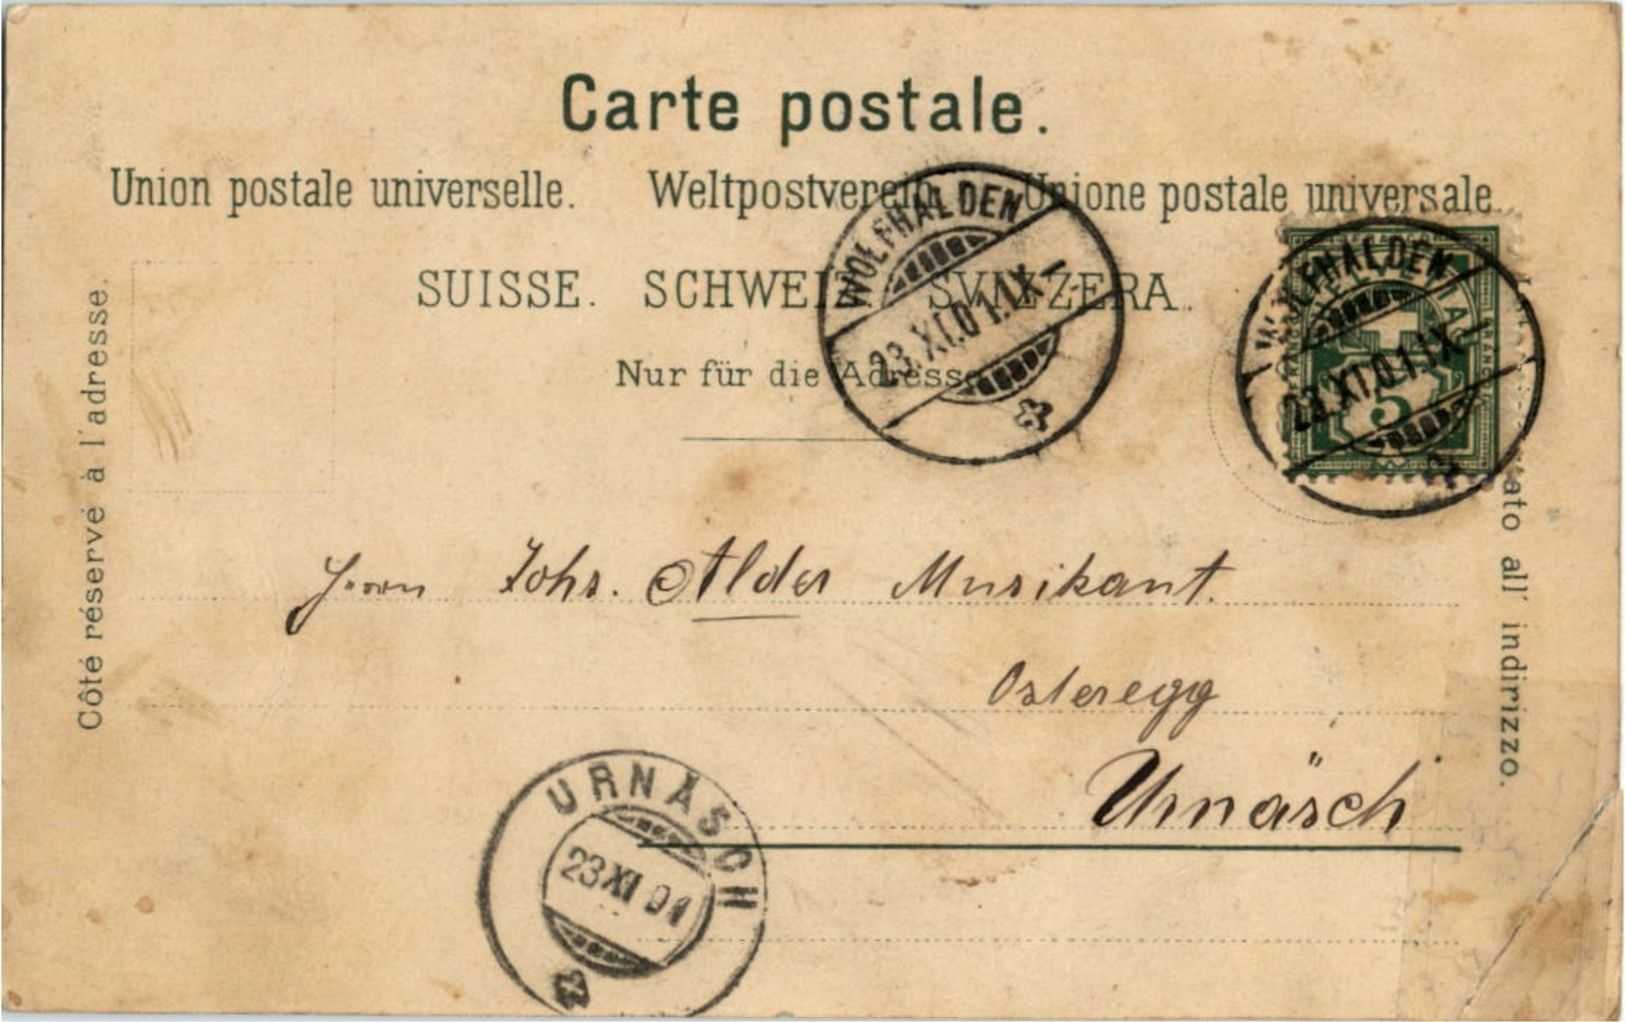 Carte postale.
Union postale universelle. Weltpostverein Unione postale universale
SUISSE. SCHWEIZ SVIZZERA.
Nur für die Adresse
Côté réservé à l'adresse.
WOLFHALDEN
23.XI.01.IX-
WOLFHALDEN
23.XI.01.IX-
5
all' indirizzo.
Herrn Johs. Alder Musikant.
Osteregg
Urnäsch
URNÄSCH
23 XI 01